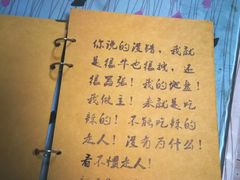 你说的没错，我就
是很牛也很拽，还
很嚣张！我的地盘！
我做主！来就是吃
辣的！不能吃辣的
走人！没有为什么！
看不惯走人！